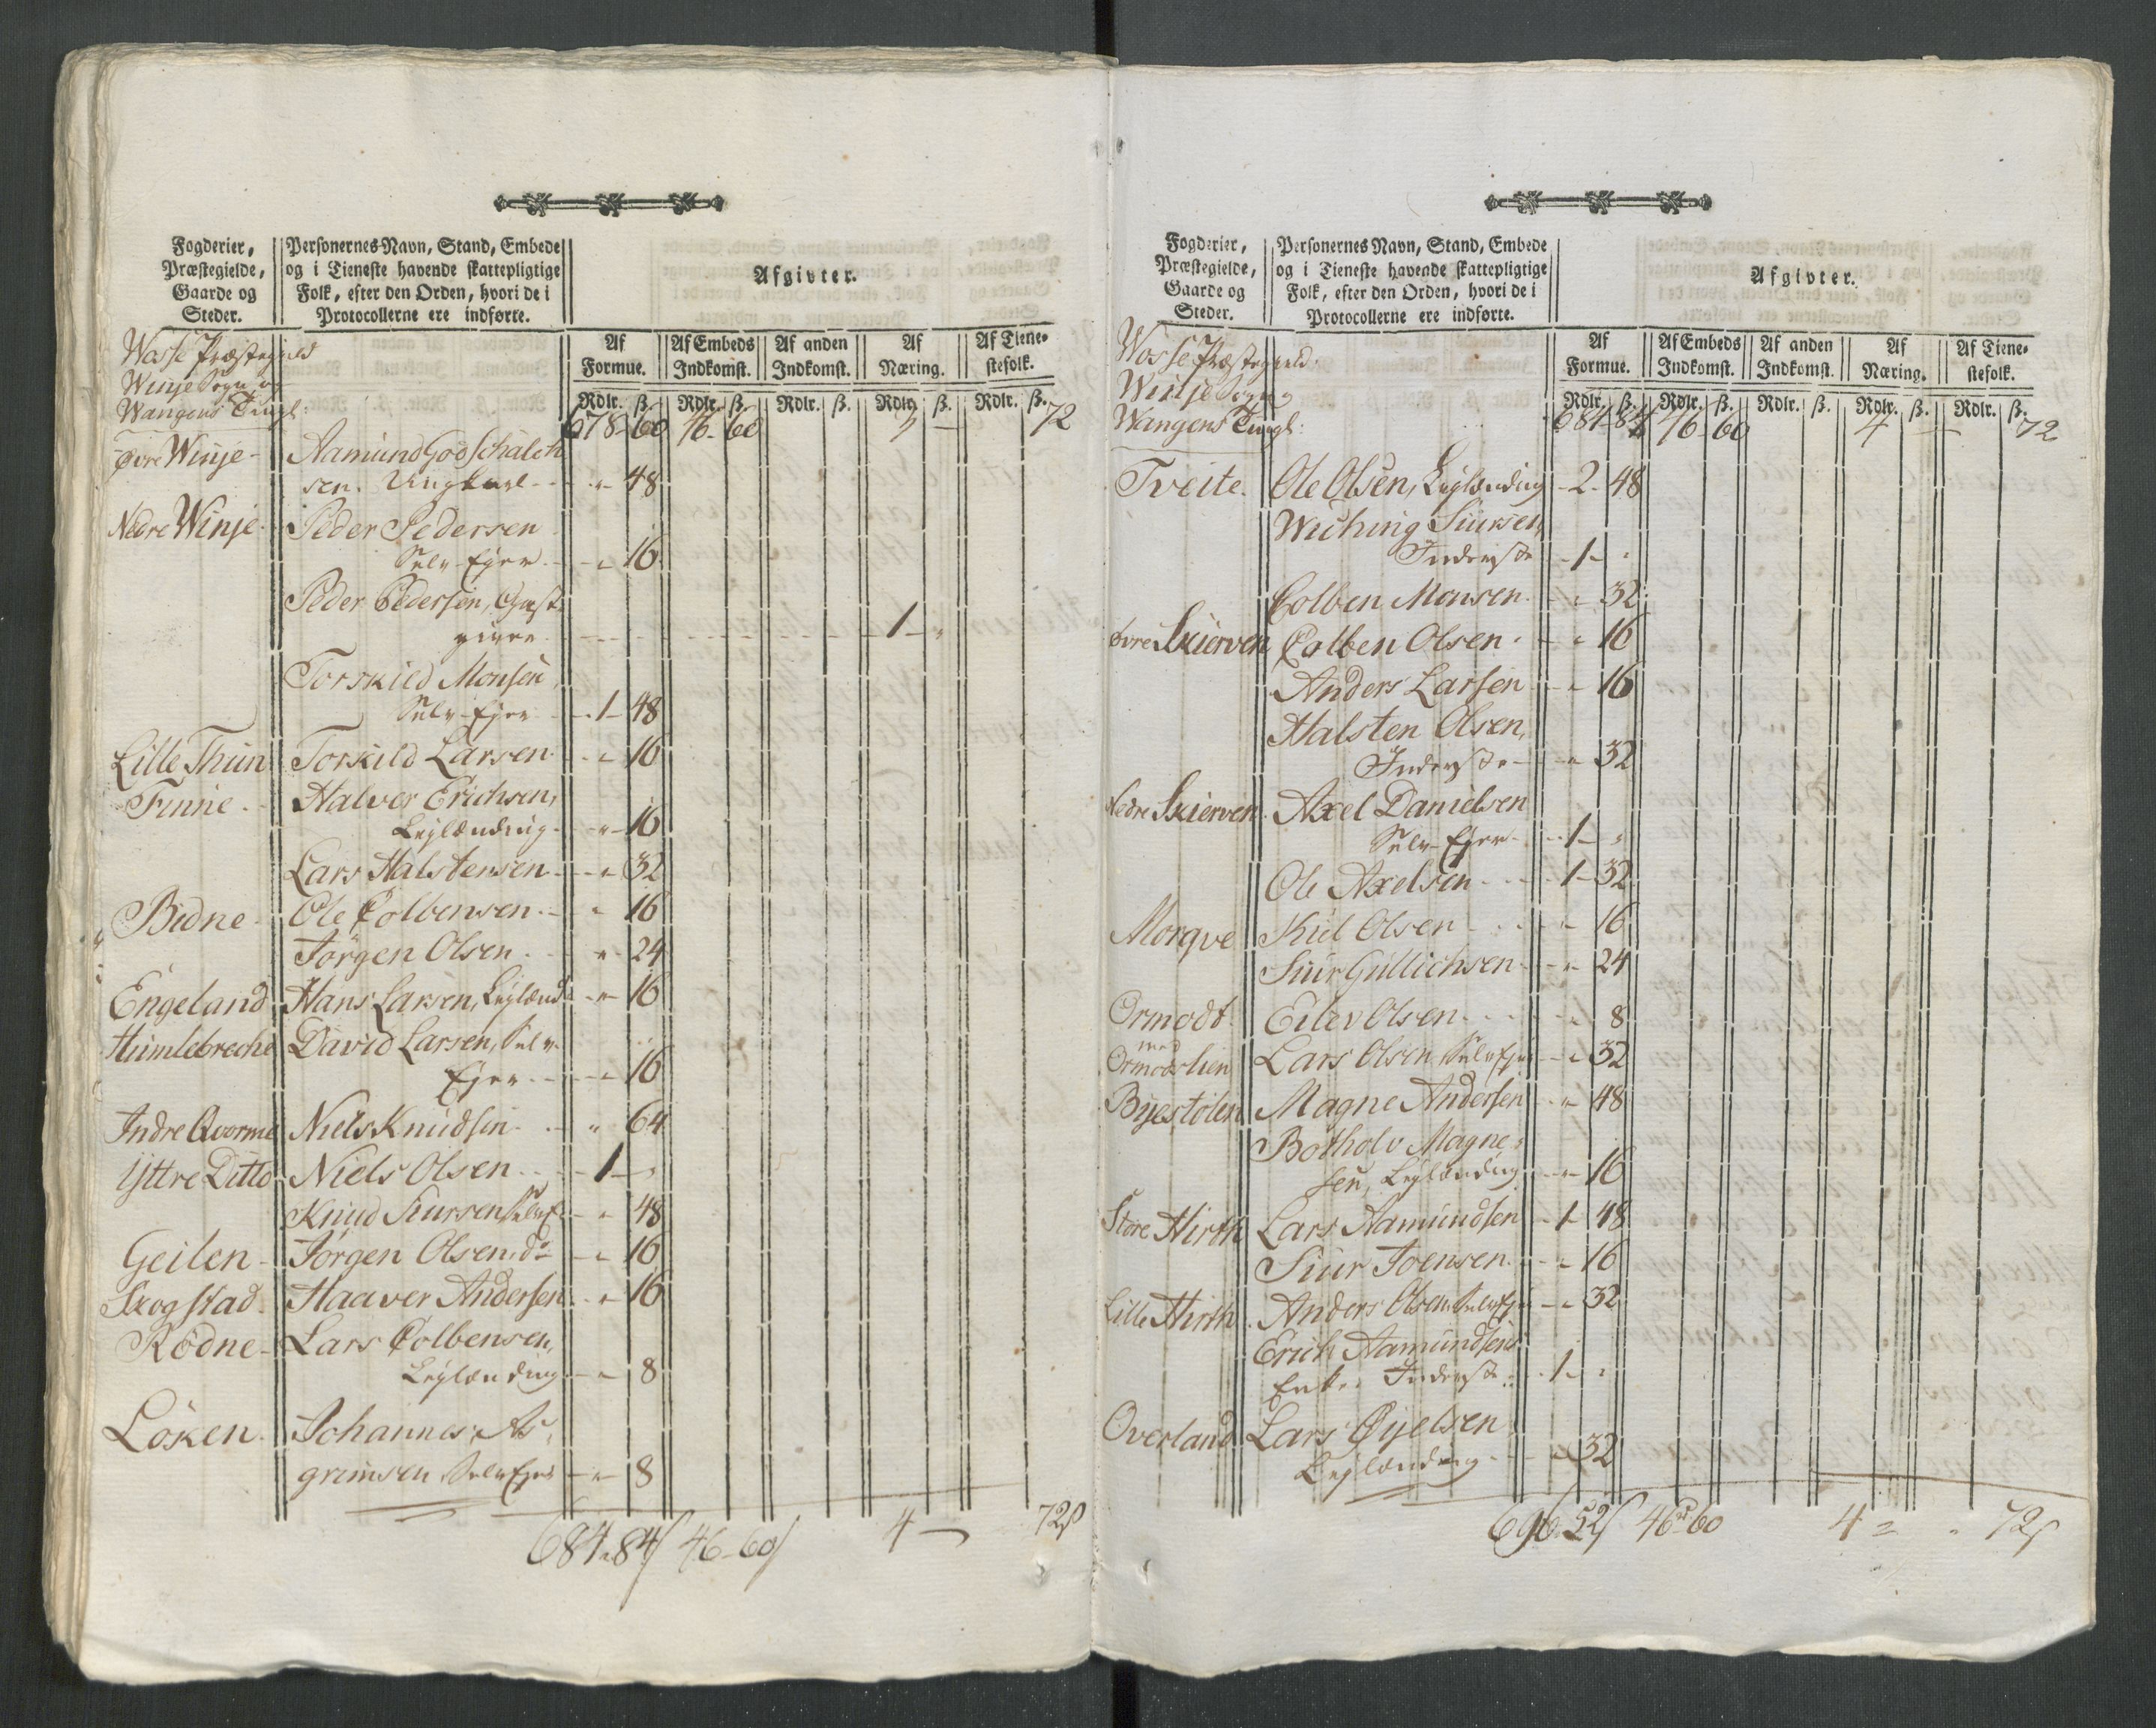 Fogderier,
Præstegielde,
Gaarde og
Steder.
Personernes Navn, Stand, Embede
og i Tieneste havende skattepligtige
Folk, efter den Orden, hvori de i
Protocollerne ere indførte.
Afgivter.
Af Formue. Af Embeds Indkomst. Af anden Indkomst. Af Næring. Af Tienestefolk.
Rdlr. ß. Rdlr. ß. Rdlr. ß. Rdlr. ß. Rdlr. ß.
Wosse Præstegield
Winje Sogn og
Wangens Tingl:
678 60 46 60 3 — 72
Øvre Winje Aamund Godschalch
sen. Ungkarl - " - 48
Nedre Winje Peder Pedersen
Selv-Ejer - " 16
Peder Pedersen, Gjæst-
giver 1 - "
Torskild Monsen,
Selv-Ejer - 1 - 48
Lille Thun Torskild Larsen - " 16
Finne Halver Erichsen,
Leylænding - " - 16
Lars Halstensen - " 32
Bidne Ole Colbensen - " 16
Jörgen Olsen - " - 24
Engeland Hans Larsen, Leylænd: - " - 16
Humlebreche David Larsen, Selv-
Ejer - " 16
Indre Qvorme Niels Knudsen - " 64
Ÿttre Ditto Niels Olsen - 1 - "
Knud Siursen Selvej: - " 48
Geilen Jörgen Olsen, do - " 16
Skogstad Haaver Andersen - " 16
Rödne Lars Colbensen,
Leylænding - " 8
Löken Johannes As-
grimsen Selv Ejer - " 8
684 " 84 ß 46 - 60 ß 4 — 72 ß
Fogderier,
Præstegielde,
Gaarde og
Steder.
Personernes Navn, Stand, Embede
og i Tieneste havende skattepligtige
Folk, efter den Orden, hvori de i
Protocollerne ere indførte.
Afgivter.
Af Formue. Af Embeds Indkomst. Af anden Indkomst. Af Næring. Af Tienestefolk.
Rdlr. ß. Rdlr. ß. Rdlr. ß. Rdlr. ß. Rdlr. ß.
Wosse Præstegield:
Winje Sogn og
Wangens Tingl:
684 - 84 46 - 60 4 — 72
Tveite Ole Olsen, Leylænding - 2 - 48
Wiching Siursen,
Inderste - 1 - "
Colben Monsen - " 32
Øvre Skierven Colben Olsen - " 16
Anders Larsen - " 16
Halsten Olsen,
Inderste - " 32
Nedre Skierven Axel Danielsen
Selv-Ejer - 1 - "
Ole Axelsen - 1 - 32
Morqve Kiel Olsen - " 16
Siur Gullichsen - " 24
Ormodt Eilev Olsen - " 8
med
Ormodslien Lars Olsen Selvejer - " 32
Byestölen Magne Andersen - " 48
Botholv Magne-
sen, Leylænding - " 16
Store Hirth Lars Aamundsen - 1 - 48
Siur Joensen - " 16
Lille Hirth Anders Olsen Selvejer - " 32
Erich Aamundsens
Enke. Inderste - 1 - "
Overland Lars Øyelsen
Leylænding - " 32
696 - 52 ß 46 - 60 4 = " 72 ß